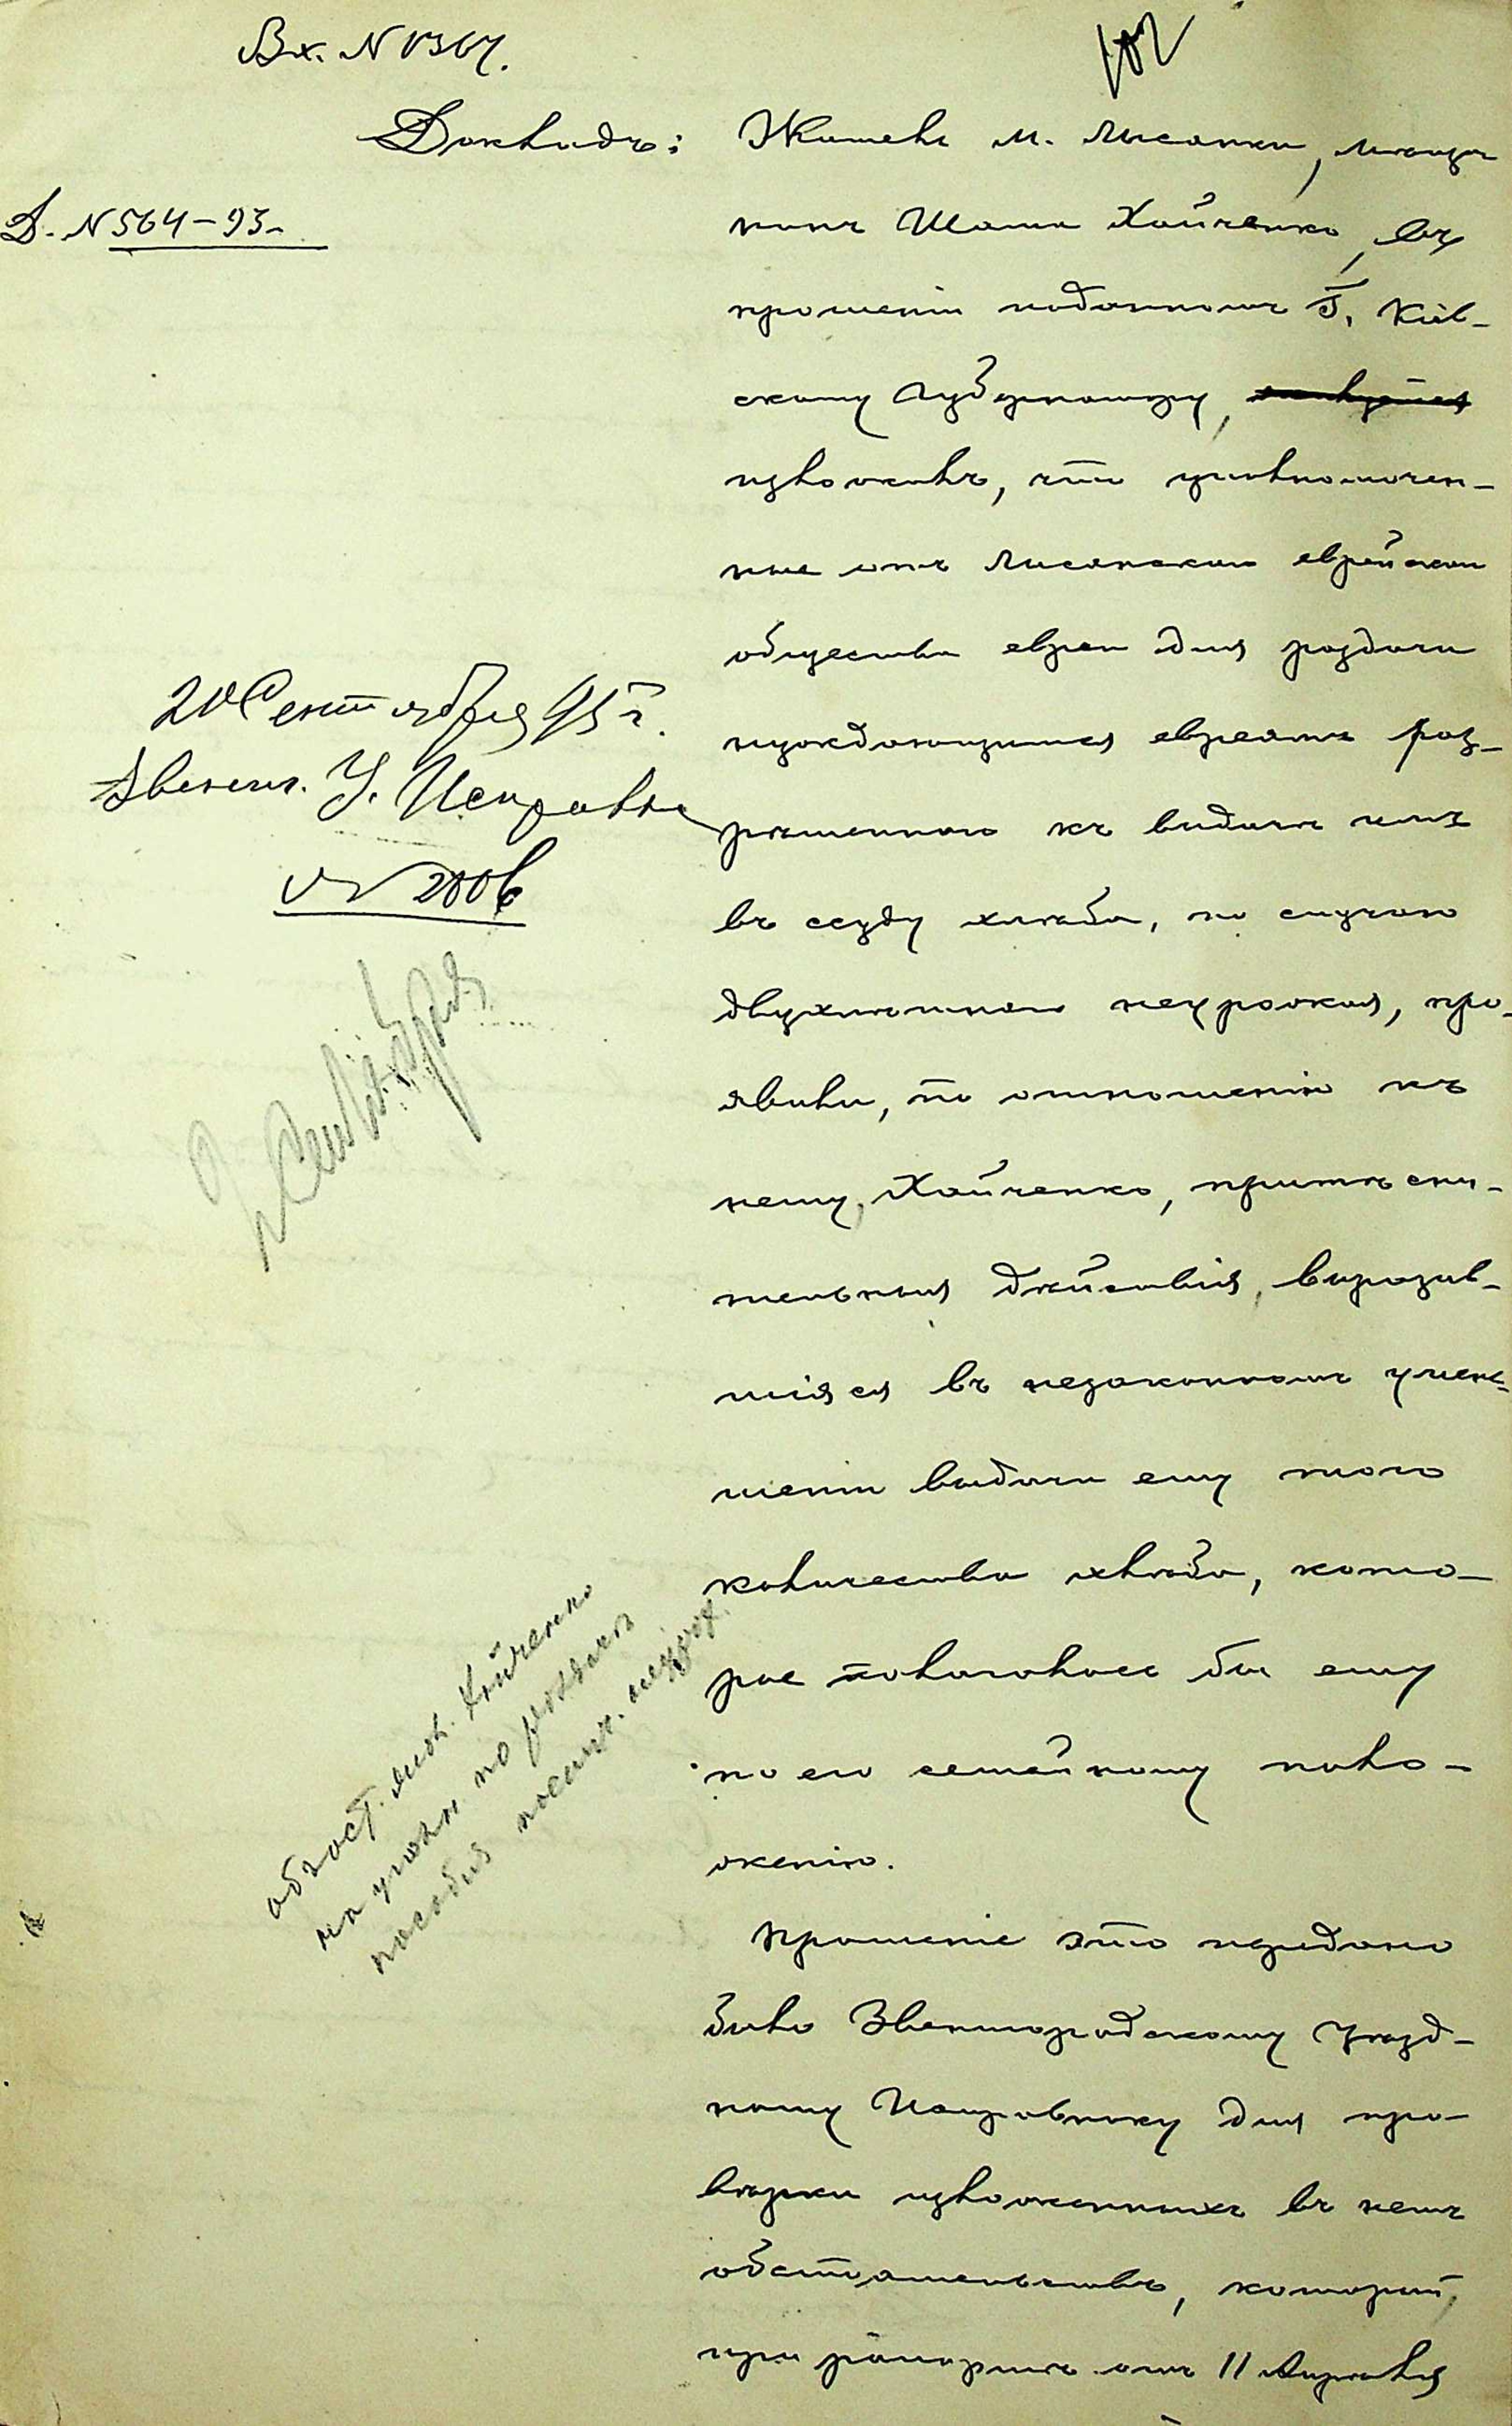 Вх. № 1367.
102
Докладъ:
Д. № 564-93.
Житель м. Лысянки, мѣща
нинъ Шама Хайченко, въ
прошеніи поданномъ Г. Кіев-
скому Губернатору,
изложилъ, что уполномочен-
ные отъ Лысянскаго еврейскаго
общества евреи для раздачи
нуждающимся евреямъ раз-
рѣшеннаго къ выдачѣ имъ
въ ссуду хлѣба, по случаю
двухлѣтняго неурожая, про-
явили, по отношенію къ
нему, Хайченко, притѣсни-
тельныя дѣйствія, выразив-
шіяся въ незаконномъ умень-
шеніи выдачи ему того
количества хлѣба, кото-
рое полагалось бы ему
по его семейному поло-
женію.
Прошеніе это передано
было Звенигородскому Уѣзд-
ному Исправнику для про-
вѣрки изложенныхъ въ немъ
обстоятельствъ, который,
при рапортѣ отъ 11 Апрѣля
20 Сентября 95 г.
Звениг. У. Исправнику
№ 2006
Сентября
Хайченко
на по
пособія